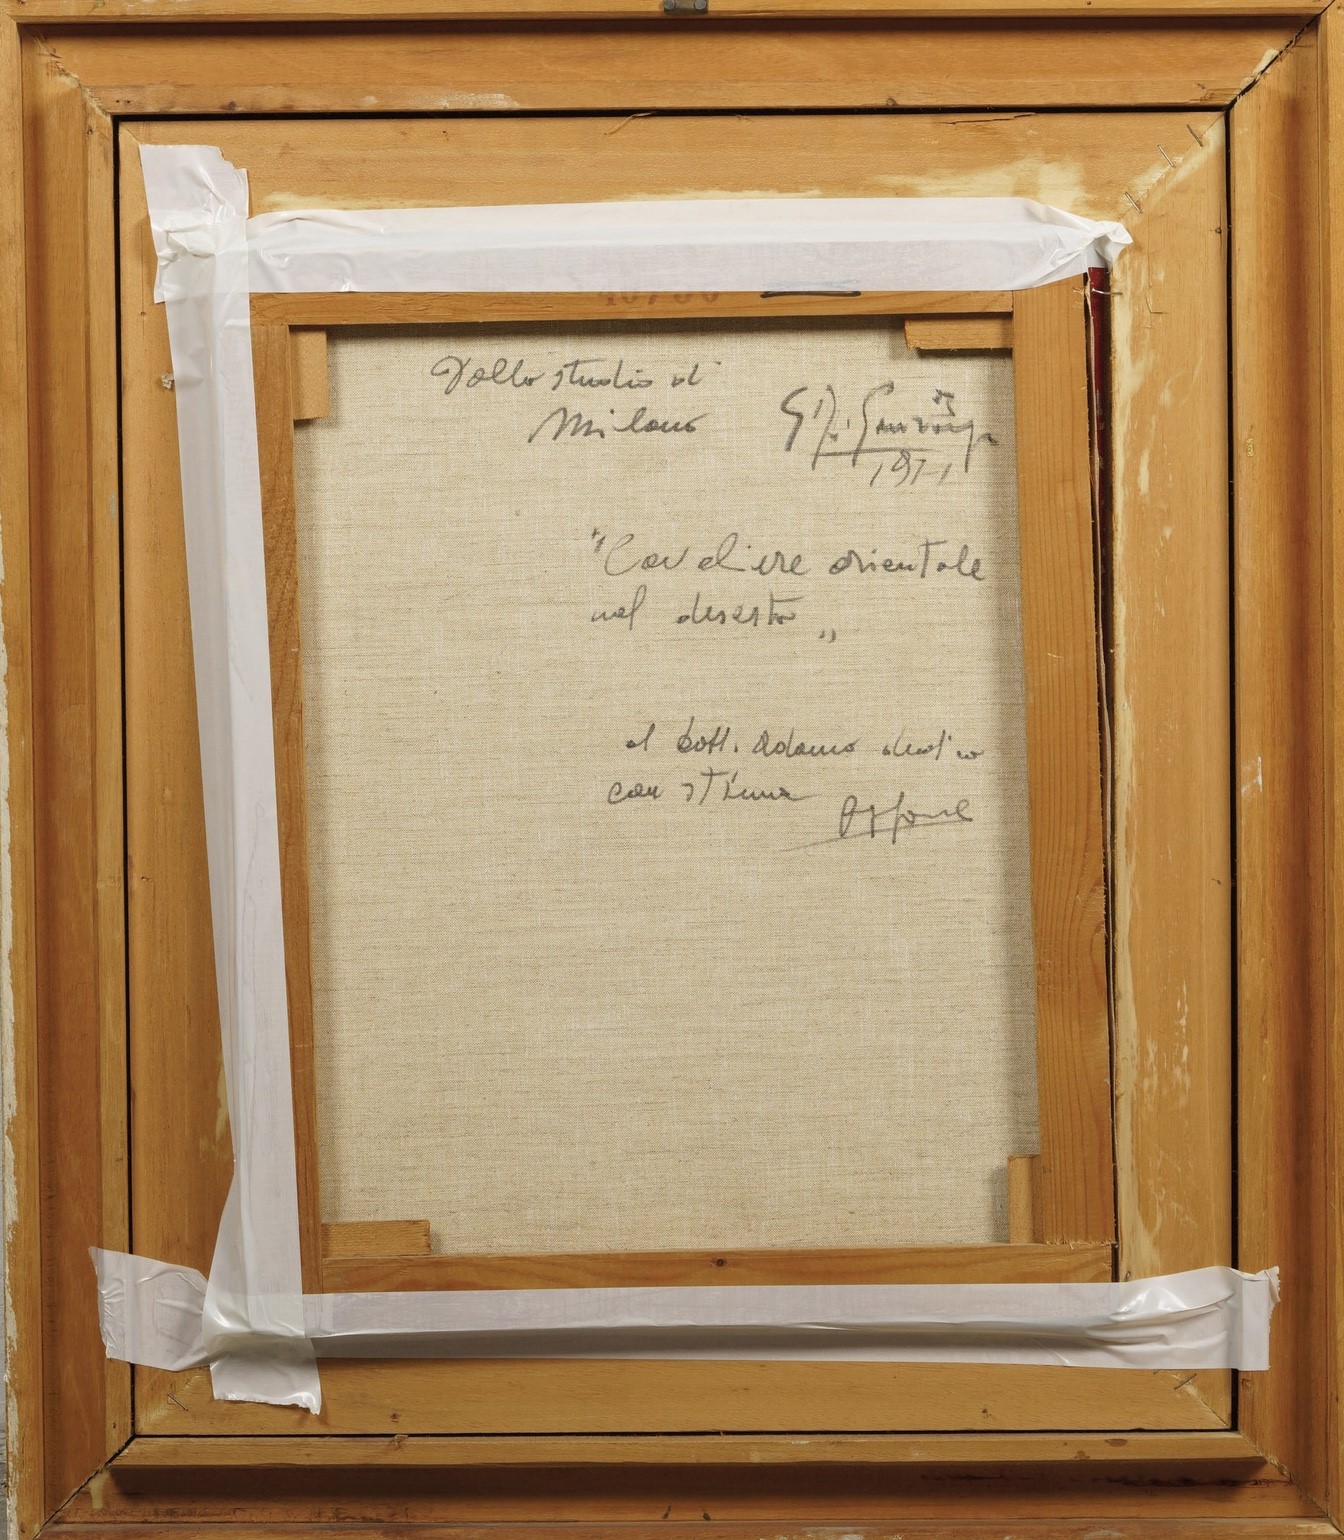 Dallo studio di
Milano
1971
"Cavaliere orientale
nel deserto „
al dott. Adamo
con stima